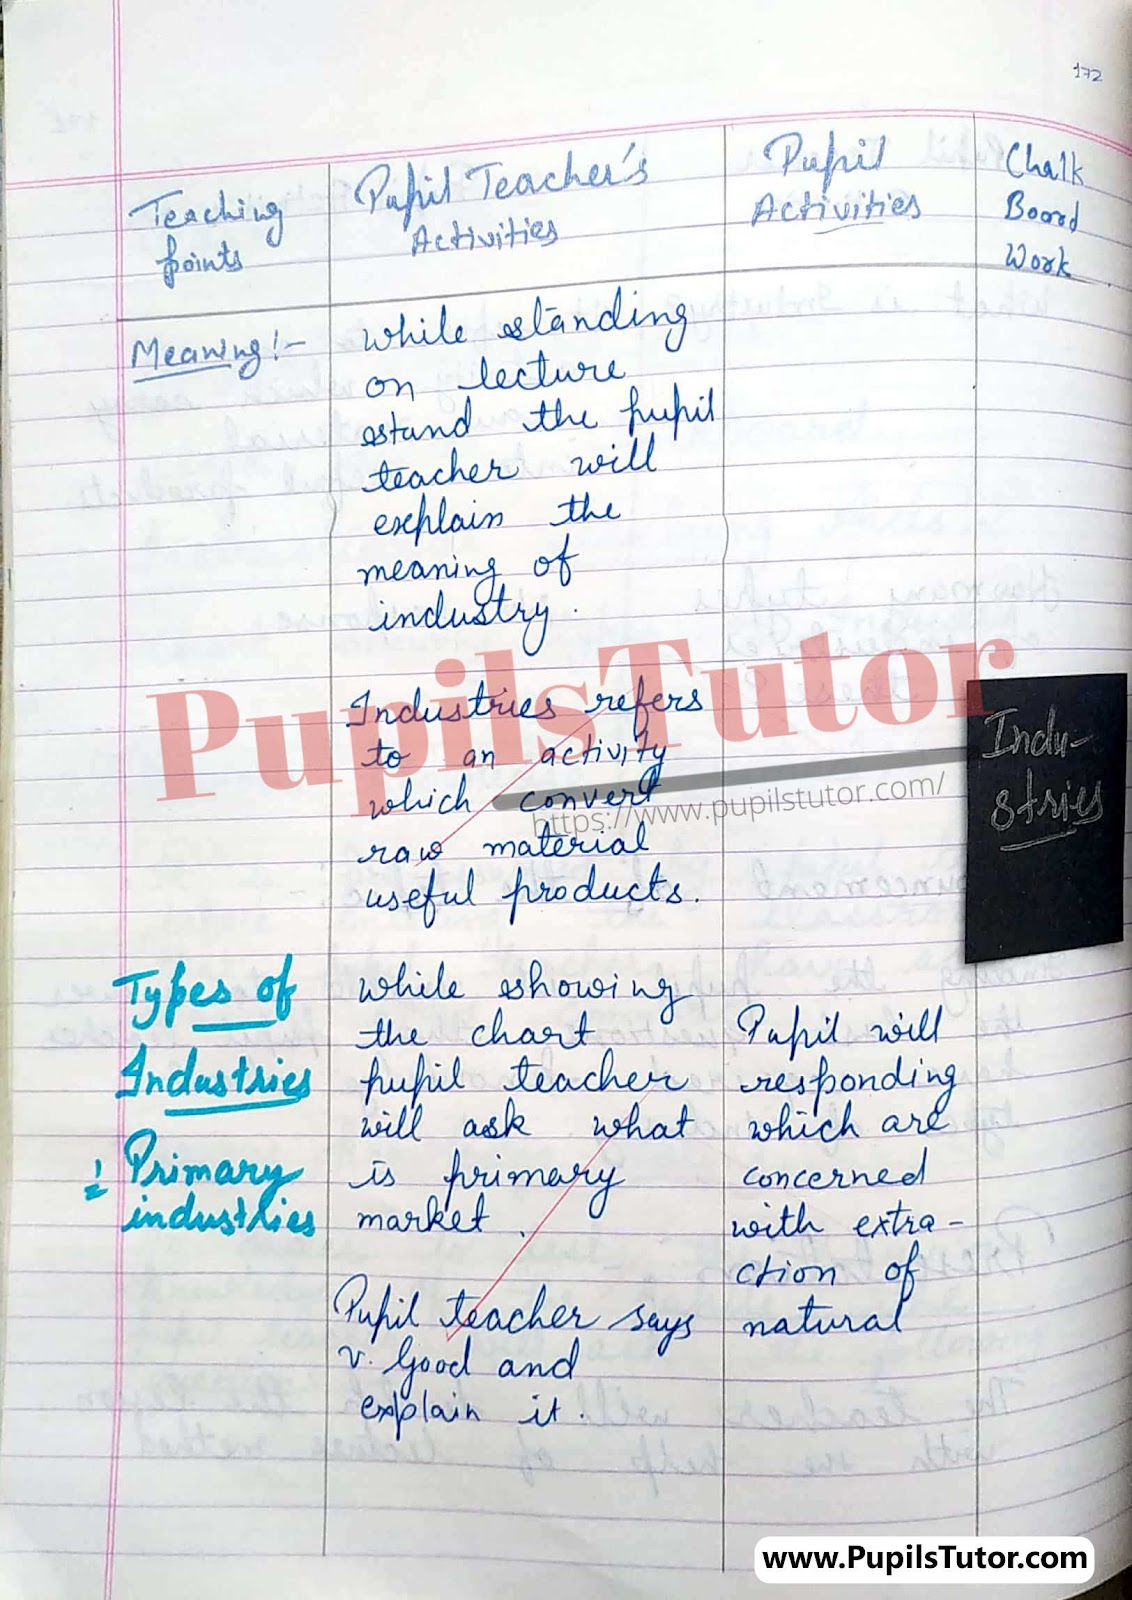 172
Teaching
points
Pupil Teacher's
Activities
Pupil
Activities
Chalk
Board
Work
Meaning:-
while standing
on lecture
stand the pupil
teacher will
explain the
meaning of
industry.
Industries refers
to an activity
which convert
raw material
useful products.
Indu-
stries
PupilsTutor
https://www.pupilstutor.com/
Types of
Industries
:- Primary
industries
while showing
the chart
pupil teacher
will ask what
is primary
market.
Pupil teacher says
v. Good and
explain it.
Pupil will
responding
which are
concerned
with extra-
ction of
natural
www.PupilsTutor.com